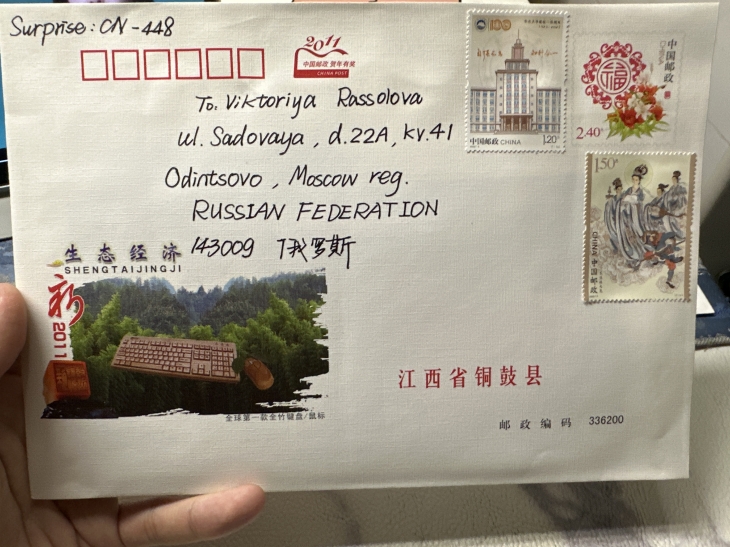 Surprise: CN-448
2011
中国邮政 贺年有奖
CHINA POST
To: Viktoriya Rassolova
ul. Sadovaya, d.22A, kv.41
Odintsovo, Moscow reg.
RUSSIAN FEDERATION
143009 俄罗斯
100
中国邮政 CHINA
1.20元
中国邮政
福
2.40元
1.50元
CHINA 中国邮政
生态经济
SHENGTAIJINGJI
新
2011
全球第一款全竹键盘/鼠标
江西省铜鼓县
邮政编码 336200